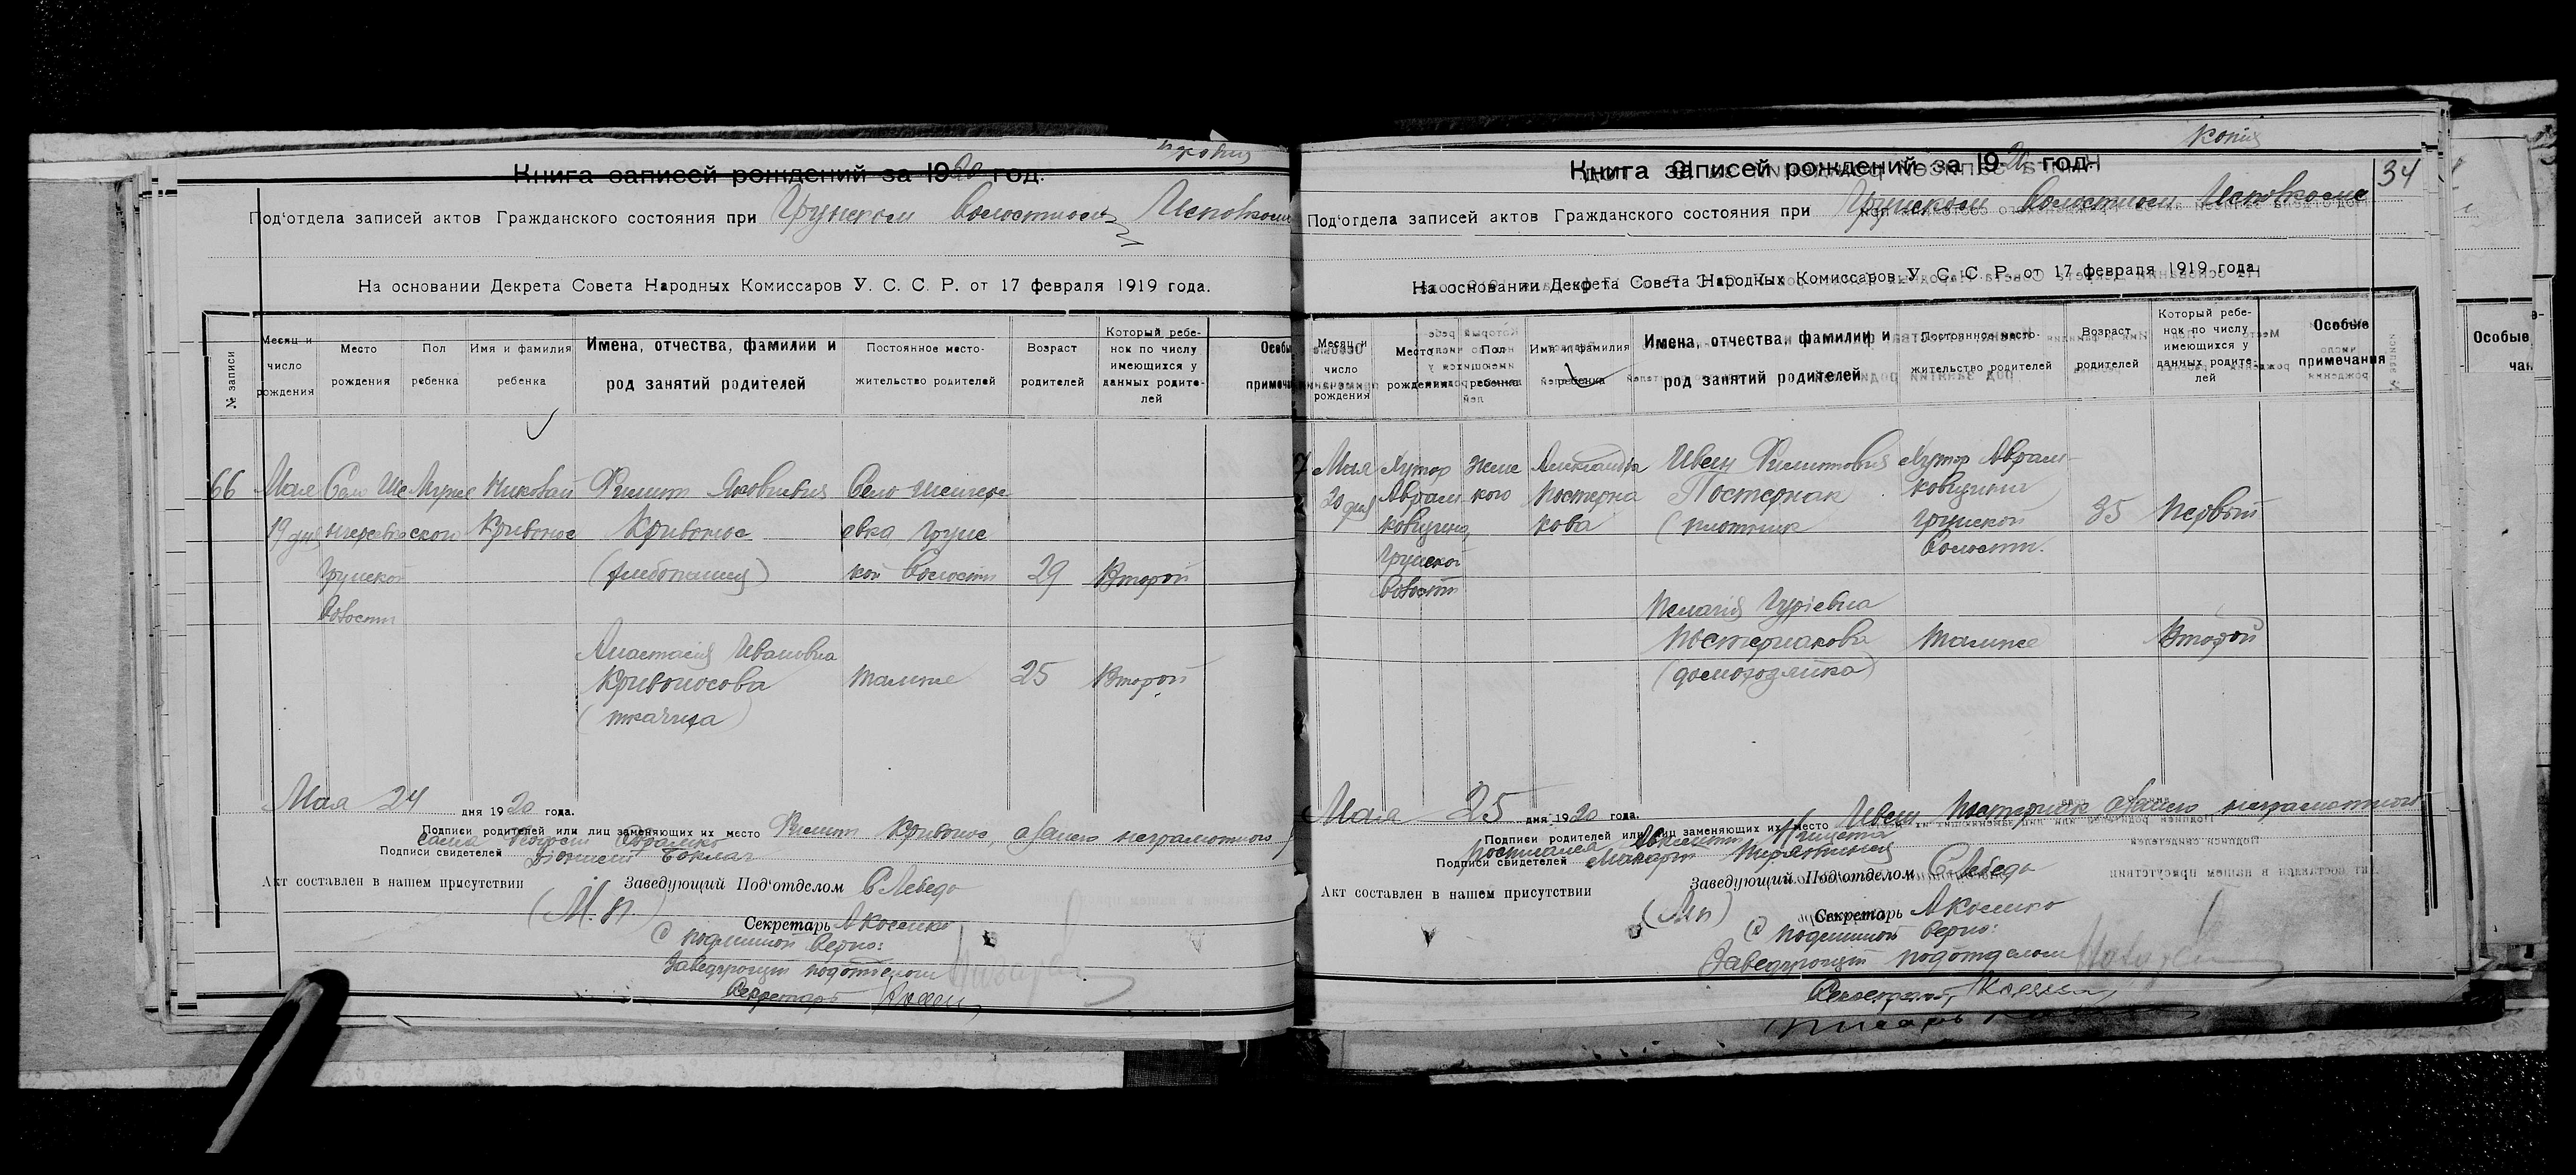 копия
Книга записей рождений за 1920 год.
Под‘отдела записей актов Гражданского состояния при Грунском Волостном Исполкоме
На основании Декрета Совета Народных Комиссаров У. С. С. Р. от 17 февраля 1919 года.
№ записи
Месяц и число рождения
Место рождения
Пол ребенка
Имя и фамилия ребенка
Имена, отчества, фамилии и род занятий родителей
Постоянное место-жительство родителей
Возраст родителей
Который ребе-нок по числу имеющихся у данных родите-лей
Особы
примеча
66
Мая
19 дня
Село
Грунской
Волости
Мужс
ского
Николай
Кривонос
Филип Яковлевич
Кривонос
(хлебопашец)
Село
евка Грунс
кой Волости
29
Второй
Анастасия Ивановна
Кривоносова
(ткачиха)
тамже
25
Второй
Мая 24 дня 1920 года.
Подписи родителей или лиц заменяющих их место Филип Кривонос, а за него неграмотного
Подписи свидетелей
Акт составлен в нашем присутствии
Заведующий Под‘отделом С Лебедь
(М. п.)
Секретарь А Косенко
С подлинной верно:
Заведующий подотделом
Секретарь
Копия
34
Книга записей рождений за 1920 год.
Под‘отдела записей актов Гражданского состояния при Грунском Волостном Исполкоме
На основании Декрета Совета Народных Комиссаров У. С. С. Р. от 17 февраля 1919 года.
Месяц и число рождения
Место рождения
Пол ребенка
Имя и фамилия ребенка
Имена, отчества, фамилии и род занятий родителей
Постоянное место-жительство родителей
Возраст родителей
Который ребе-нок по числу имеющихся у данных родите-лей
Особые примечания
7
Мая
20 дня
Хутор
Аврам
ковщина,
Грунской
Волости
Женс
кого
Александра
Постерна
кова
Иван Филиппович
Постернак
(плотник
Хутор Аврам-
ковщина
Грунской
Волости.
35
Первый
Пелагия Гуріевна
Постернакова
(домохозяйка)
тамже
Второй
Мая 25 дня 1920 года.
Подписи родителей или лиц заменяющих их место Иван Постернак а за него неграмотного
Подписи свидетелей Макарий
Акт составлен в нашем присутствии
Заведующий Под‘отделом С Лебедь
(М п)
Секретарь А Косенко
С подлинной верно:
Заведующий подотделом
Секретарь
Особые
чан